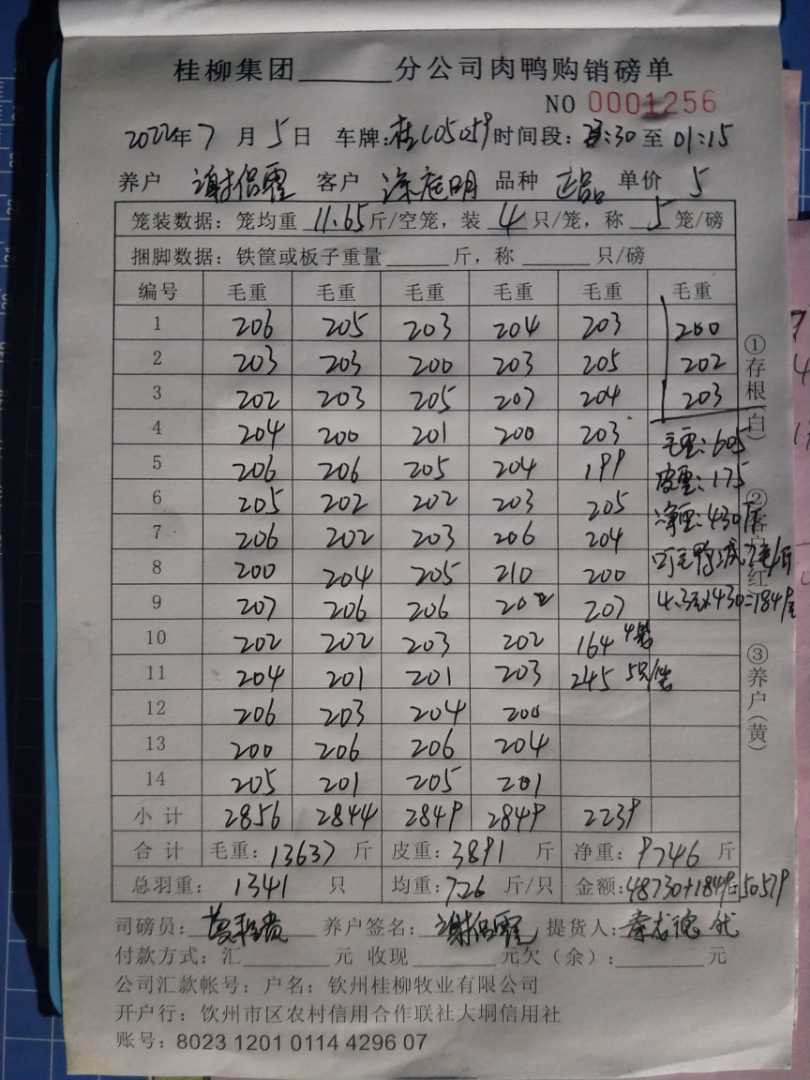 桂柳集团______分公司肉鸭购销磅单
NO 0001256
2022年7月5日 车牌:桂C05059 时间段::30至01:15
养户 谢侣霞 客户 深庭明 品种 正品 单价 5
笼装数据:笼均重 11.65斤/空笼,装 4 只/笼,称 5 笼/磅
捆脚数据:铁筐或板子重量______斤,称______只/磅
编号 毛重 毛重 毛重 毛重 毛重 毛重
1 206 205 203 204 203 200
2 203 203 200 203 205 202
3 202 203 205 207 204 203
4 204 200 201 200 203 毛重:605
5 206 206 205 204 199 皮重:175
6 205 202 202 203 205 净重:430斤
7 206 202 203 206 204 毛鸭减
8 200 204 205 210 200
9 207 206 206 202 207 430=1849
10 202 202 203 202 164 4笼
11 204 201 201 203 245 5只/笼
12 206 203 204 200
13 200 206 206 204
14 205 201 205 201
小计 2856 2844 2849 2849 2239
合计 毛重:13637斤 皮重:3891斤 净重:9746斤
总羽重: 1341 只 均重:7.26 斤/只 金额:48730+1849=50579
司磅员: 养户签名:谢侣霞 提货人: 代
付款方式:汇______元 收现______元欠(余):______元
公司汇款帐号:户名:钦州桂柳牧业有限公司
开户行:钦州市区农村信用合作联社大垌信用社
账号:8023 1201 0114 4296 07
①存根(白)
②客户(红)
③养户(黄)